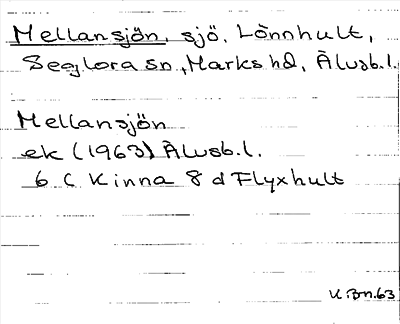 Mellansjön, sjö, Lönnhult,
Seglora sn, Marks hd, Älvsb.l.
Mellansjön
ek (1963) Älvsb.l.
6 C Kinna 8 d Flyxhult
U.Bn.63